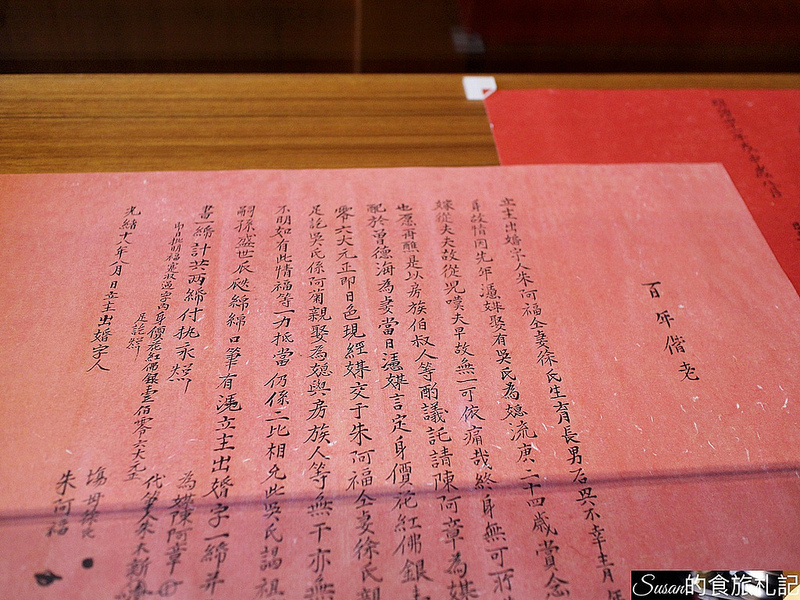 百年偕老
立主出婚字人朱阿福仝妻徐氏生育長男石興不幸
身故情因先年憑媒娶有吳氏為媳流庚二十四歲嘗念
嫁從夫夫故從兒嘆夫早故無一可依痛哉終身無可所
也愿再醮是以房族伯叔人等酌議託請陳阿章為媒
配於曾德海為妻當日憑媒言定身價花紅佛銀壹
零六大元正即日色現經媒交于朱阿福仝妻徐氏親
足訖吳氏係阿菊親娶為媳與房族人等無干亦無
不明如有此情福等一力抵當仍係二比相允此吳氏謁祖
嗣孫盛世辰瓞綿綿口筆有憑立主出婚字一綈并
書一綈計共兩綈付執永照
即日批明福寔收過字內身價花紅佛銀壹佰零六大元正
足訖照
為媒陳阿章
代筆人朱木新
光緒十八年八月日立主出婚字人
朱阿福
Susan的食旅札記